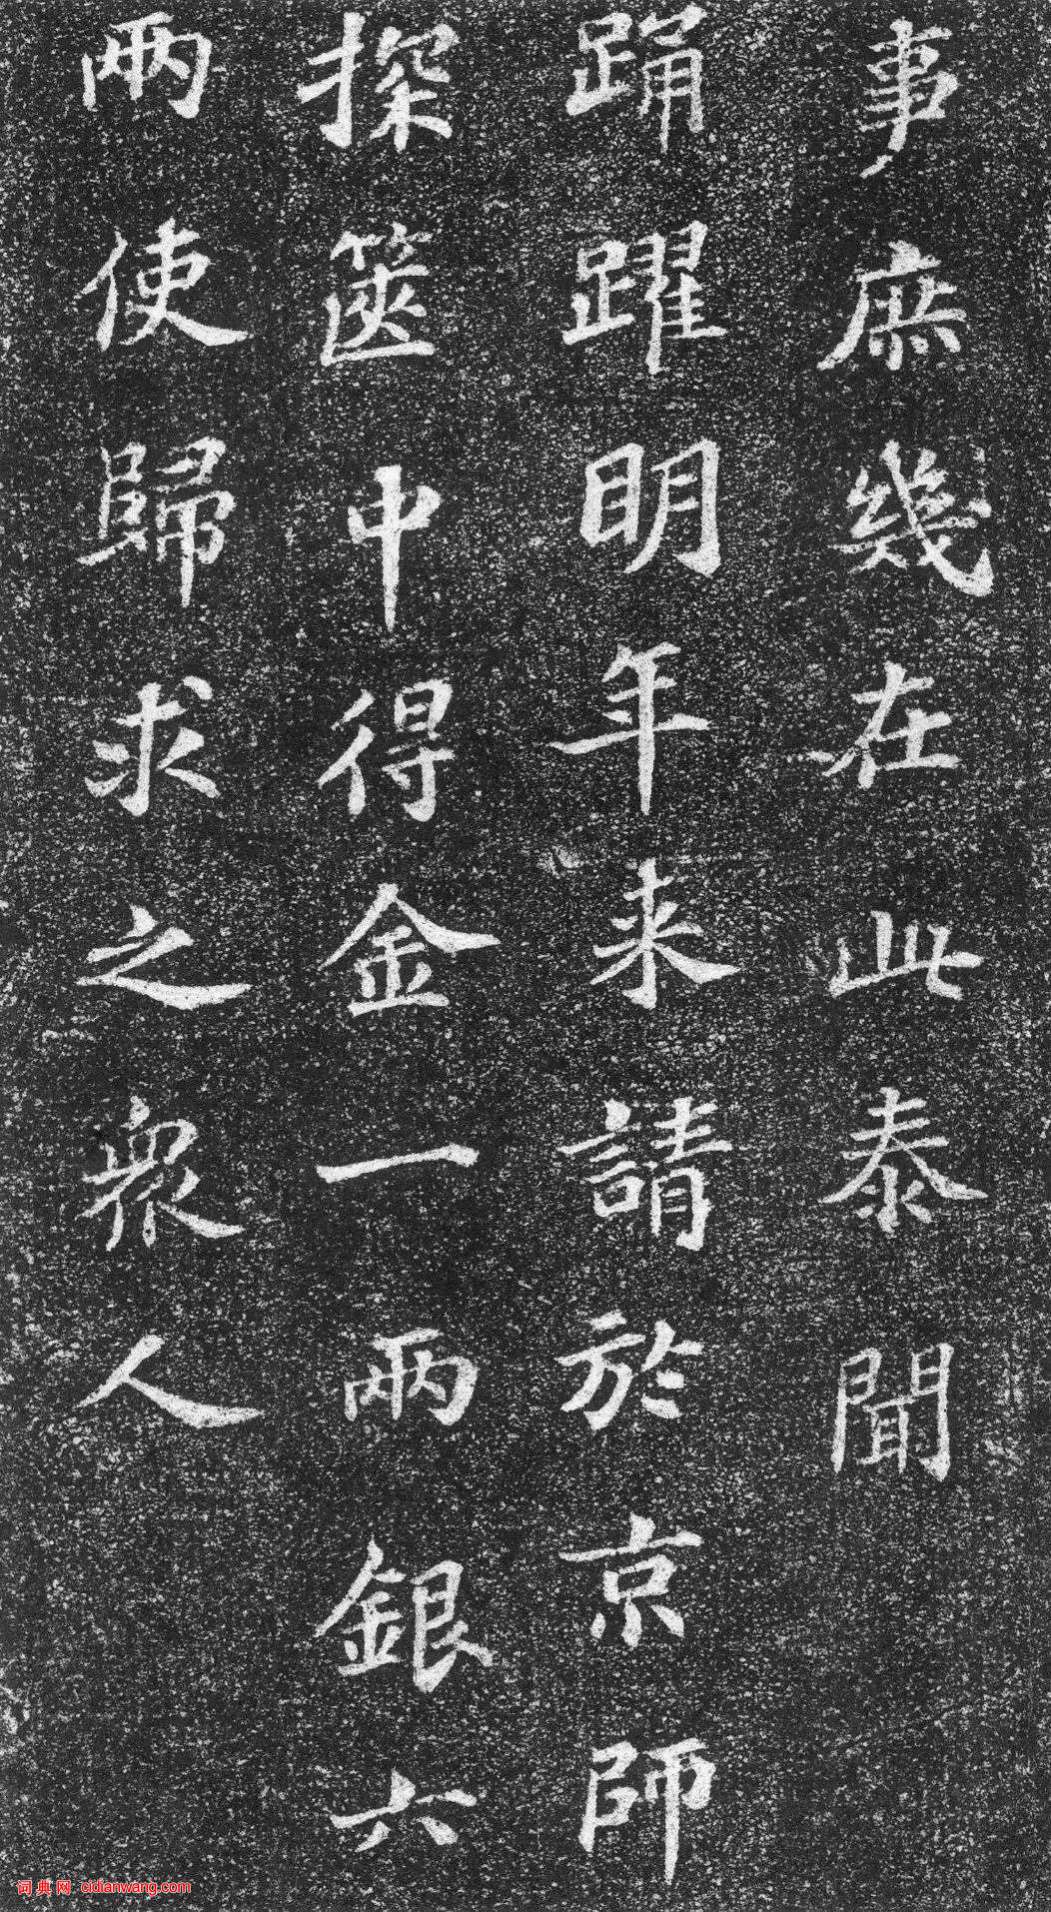 事庶幾在此泰聞
踊躍明年来請於京師
探篋中得金一兩銀六
兩使歸求之衆人
词典网 cidianwang.com